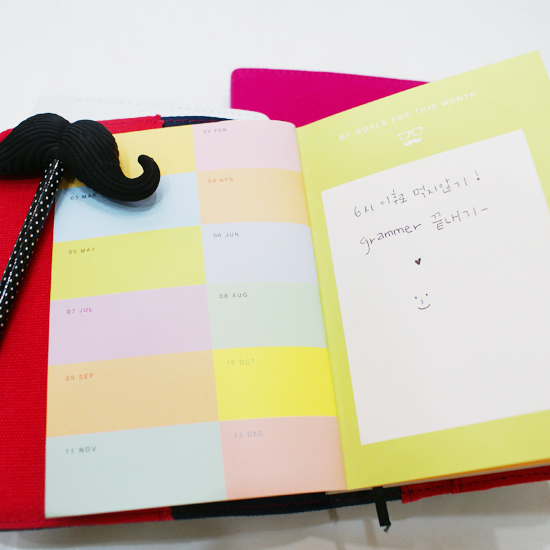 02 FEB
03 MAR
04 APR
05 MAY
06 JUN
07 JUL
08 AUG
09 SEP
10 OCT
11 NOV
12 DEC
MY GOALS FOR THIS MONTH
6시 이후로 먹지않기!
grammer 끝내기~